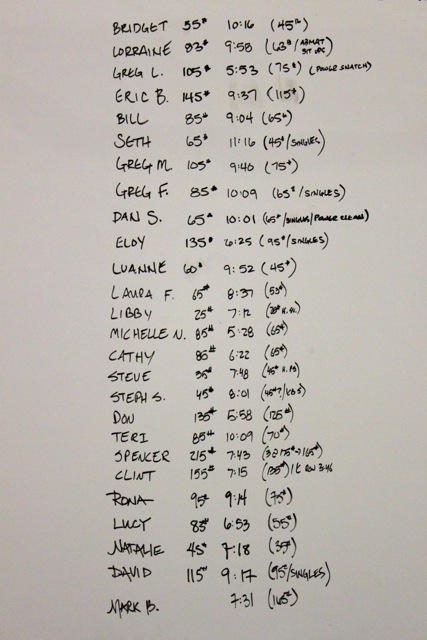 BRIDGET 55# 10:16 (45#)
LORRAINE 83# 9:58 (63#/ABMAT SIT UPS)
GREG L. 105# 5:53 (75#) (POWER SNATCH)
ERIC B. 145# 9:37 (115#)
BILL 85# 9:04 (65#)
SETH 65# 11:16 (45#/SINGLES)
GREG M. 105# 9:40 (75#)
GREG F. 85# 10:09 (65#/SINGLES)
DAN S. 65# 10:01 (65#/SINGLES/POWER CLEAN)
ELOY 135# 6:25 (95#/SINGLES)
LUANNE 60# 9:52 (45#)
LAURA F. 65# 8:37 (53#)
LIBBY 25# 7:12
MICHELLE N. 85# 5:28 (65#)
CATHY 85# 6:22 (65#)
STEVE 35# 7:48
STEPH S. 45# 8:01
DON 135# 5:58 (125#)
TERI 85# 10:09 (70#)
SPENCER 215# 7:43 (3@175#→165#)
CLINT 155# 7:15 (135#) 1K ROW 3:46
RONA 95# 9:14 (75#)
LUCY 83# 6:53 (55#)
NATALIE 45# 7:18 (35#)
DAVID 115# 9:17 (95#/SINGLES)
MARK B. 7:31 (165#)